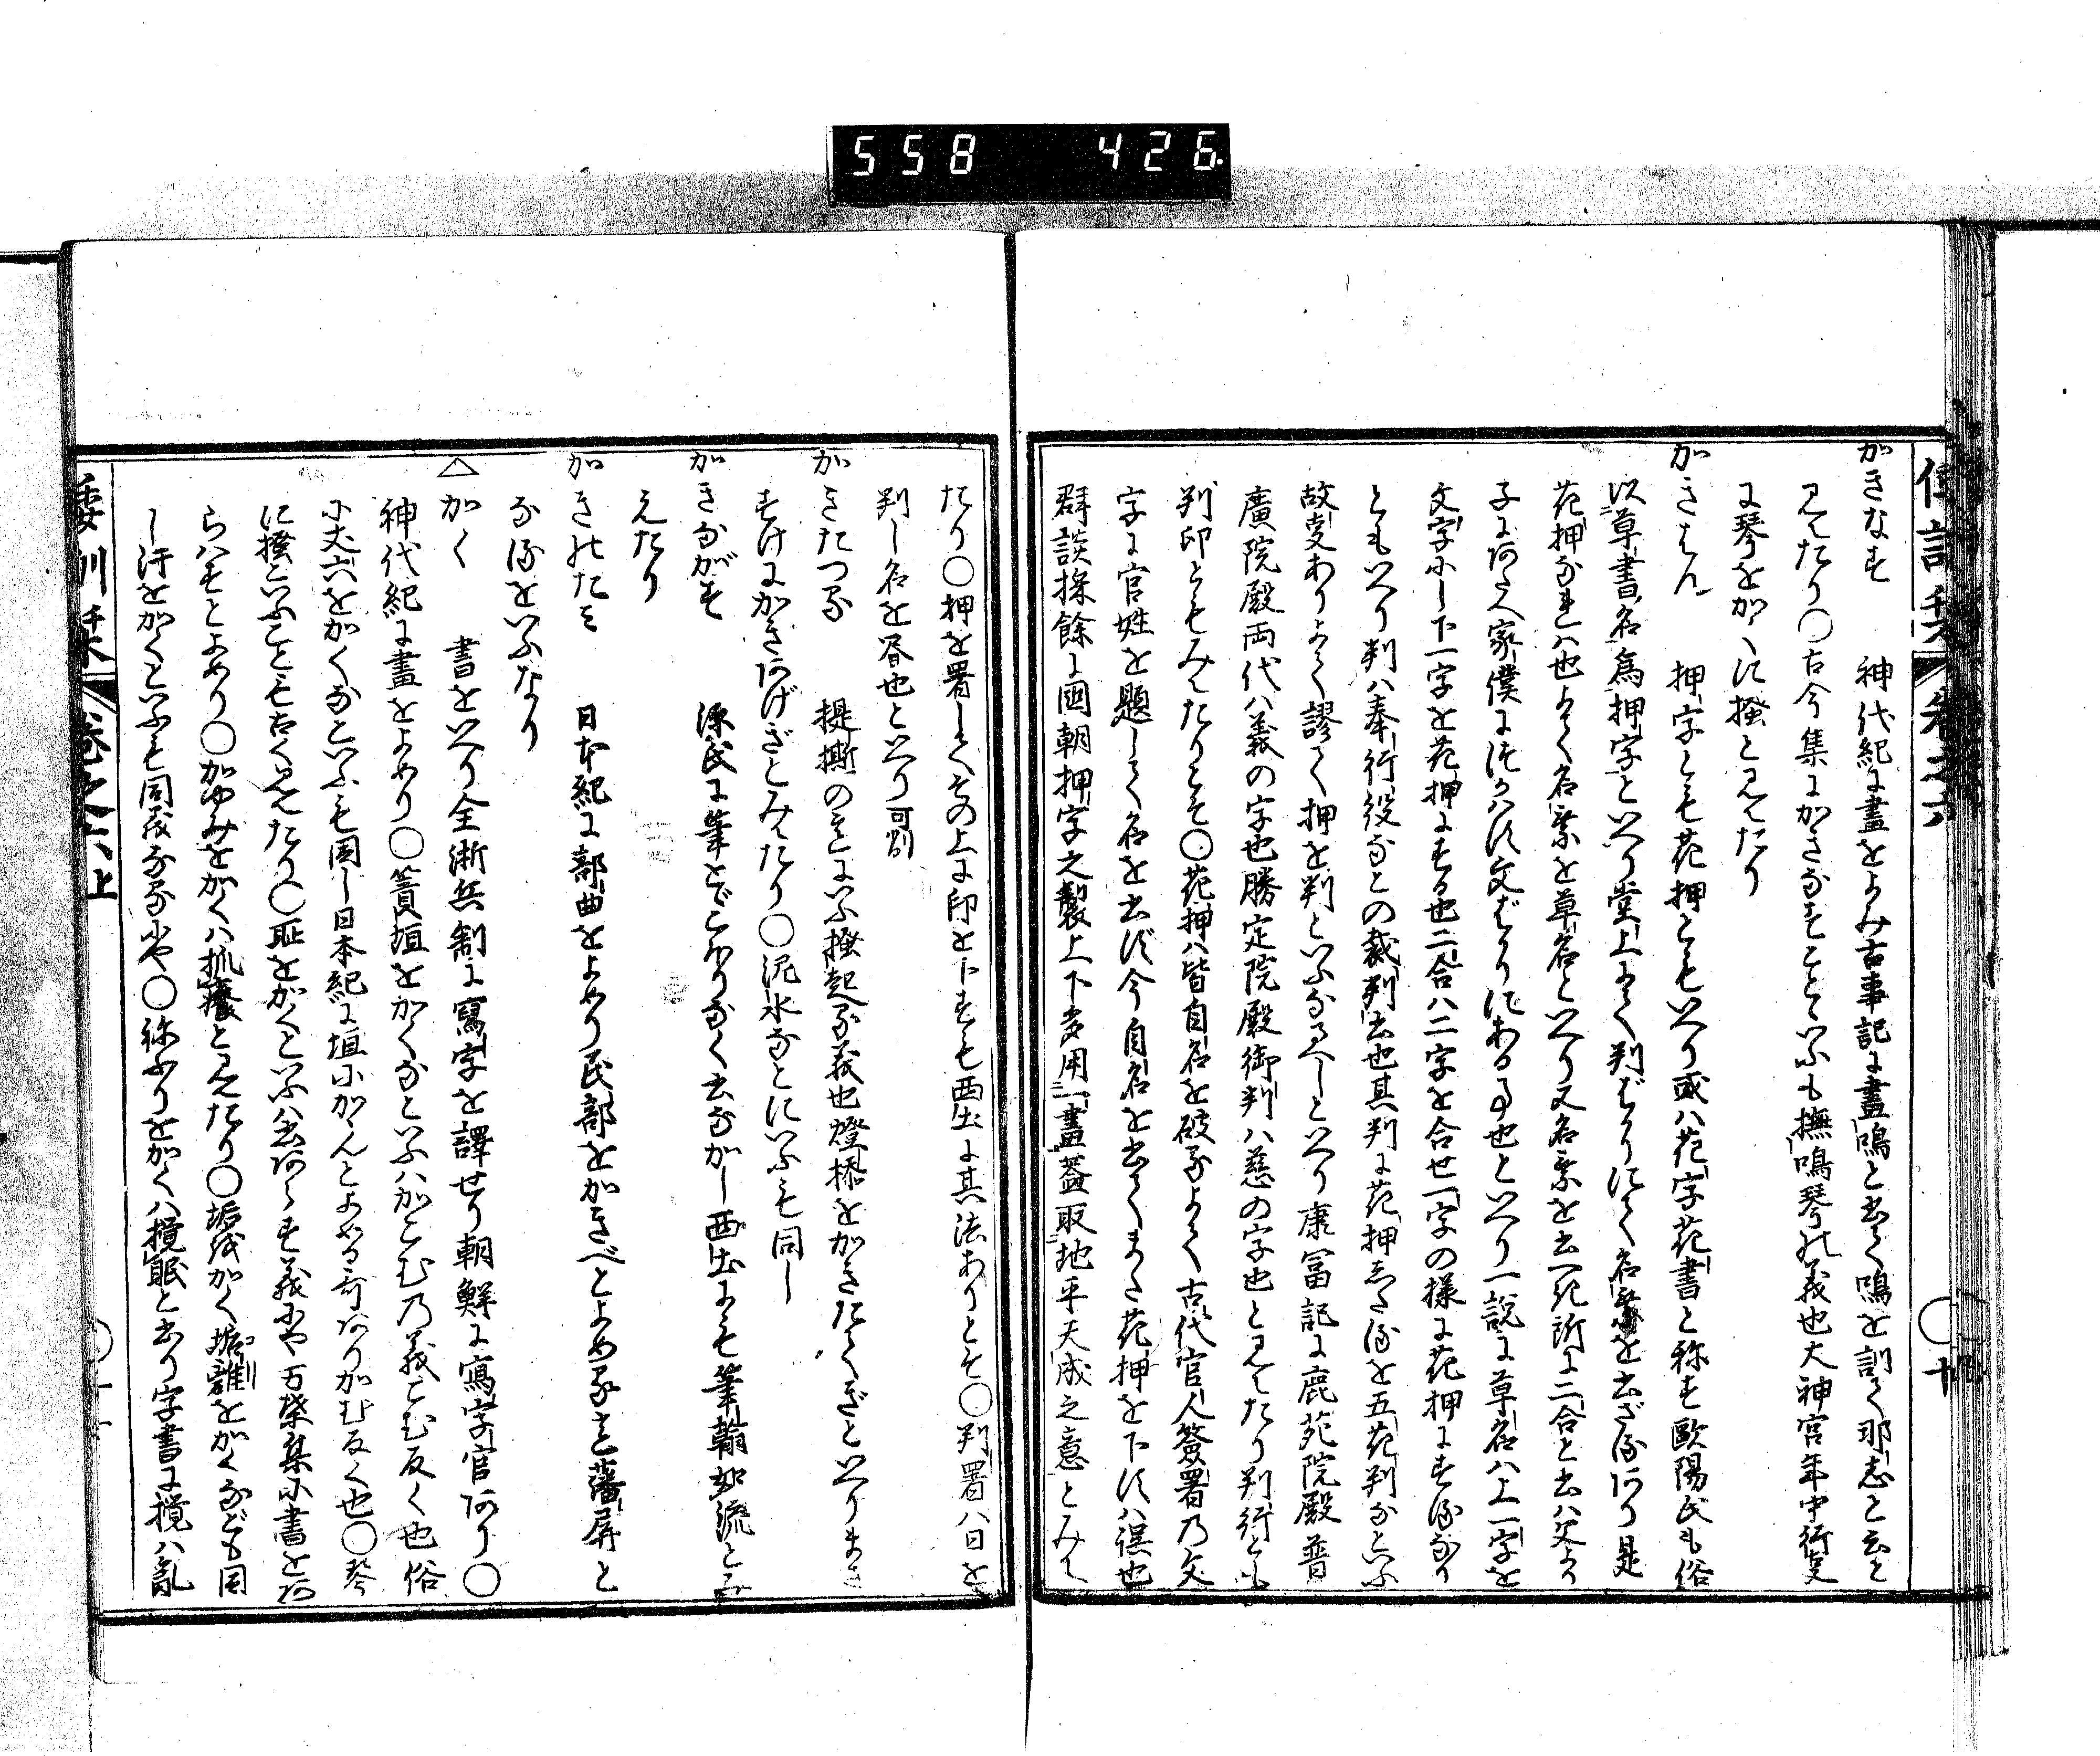 558 426
かきなす 神代紀に畫をよみ古事記に畫鳴と書て鳴を訓て那志と云と
見えたり〇古今集にかきなすことゝいふも撫鳴琴の義也大神宮年中行事
に琴をかくに掻と見えたり
かきはん 押字とも花押ともいへり或ハ花字花書と称す歐陽氏も俗
以草書名為押字といへり堂上にて判ばかりにて名乗を書ざるあり是
花押なれハ也よて名乗を草名といへり又名乗を書べき所に二合と書ハ父より
子にあたへ家僕につかハす文ばかりにある事也といへり一説に草名ハ上一字を
文字にし下一字を花押にする也二合ハ二字を合せ一字の様に花押にするなり
ともいへり判ハ奉行役などの裁判書也其判に花押したるを五花判なといふ
故支ありよて謬て押を判といふなるへしといへり康冨記に鹿苑院殿普
廣院殿両代ハ義の字也勝定院殿御判ハ慈の字也と見えたり判行とも
判印ともみえたりとそ〇花押ハ皆自名を破るよて古代官人簽署乃文
字に官姓を題して名を書ず今自名を書てまた花押を下すハ誤也
群談採餘に國朝押字之製上下多用一畫蓋取地平天成之意とみえ
たり〇押を署してその上に印を下すも西土に其法ありとそ〇判署ハ日を
判し名を署也といへり可考
かきたつる 提撕の意にいふ撥起る義也燈掭をかきたてぎといへりまき
すけにかきあげぎとみえたり〇泥水なとにいふも同し
かきながす 源氏に筆とどこほりなく書ながし西土にても筆翰如流とみ
えたり
かきのたみ 日本紀に部曲をよめり民部をかきべとよめるも藩屏と
なるをいふなり
△かく 書をいへり全浙兵制に寫字を譯せり朝鮮に寫字官あり〇
神代紀に畫をよめり〇簀垣をかくなといふハかこむ乃義こむ反く也俗
に丈六をかくなといふも同し日本紀に垣にかんとよめる訶ありかむ反く也〇琴
に掻といふことも古く見えたり〇恥をかくといふハ書あらす義にや万葉集に書をあ
らハすとよめり〇かゆみをかくハ抓癢と見えたり〇垢をかく鼾をかくなども同
し汗をかくといふも同義なるにや〇ねふりをかくハ攪眠と書り字書に攪ハ亂
倭訓栞 巻之六上